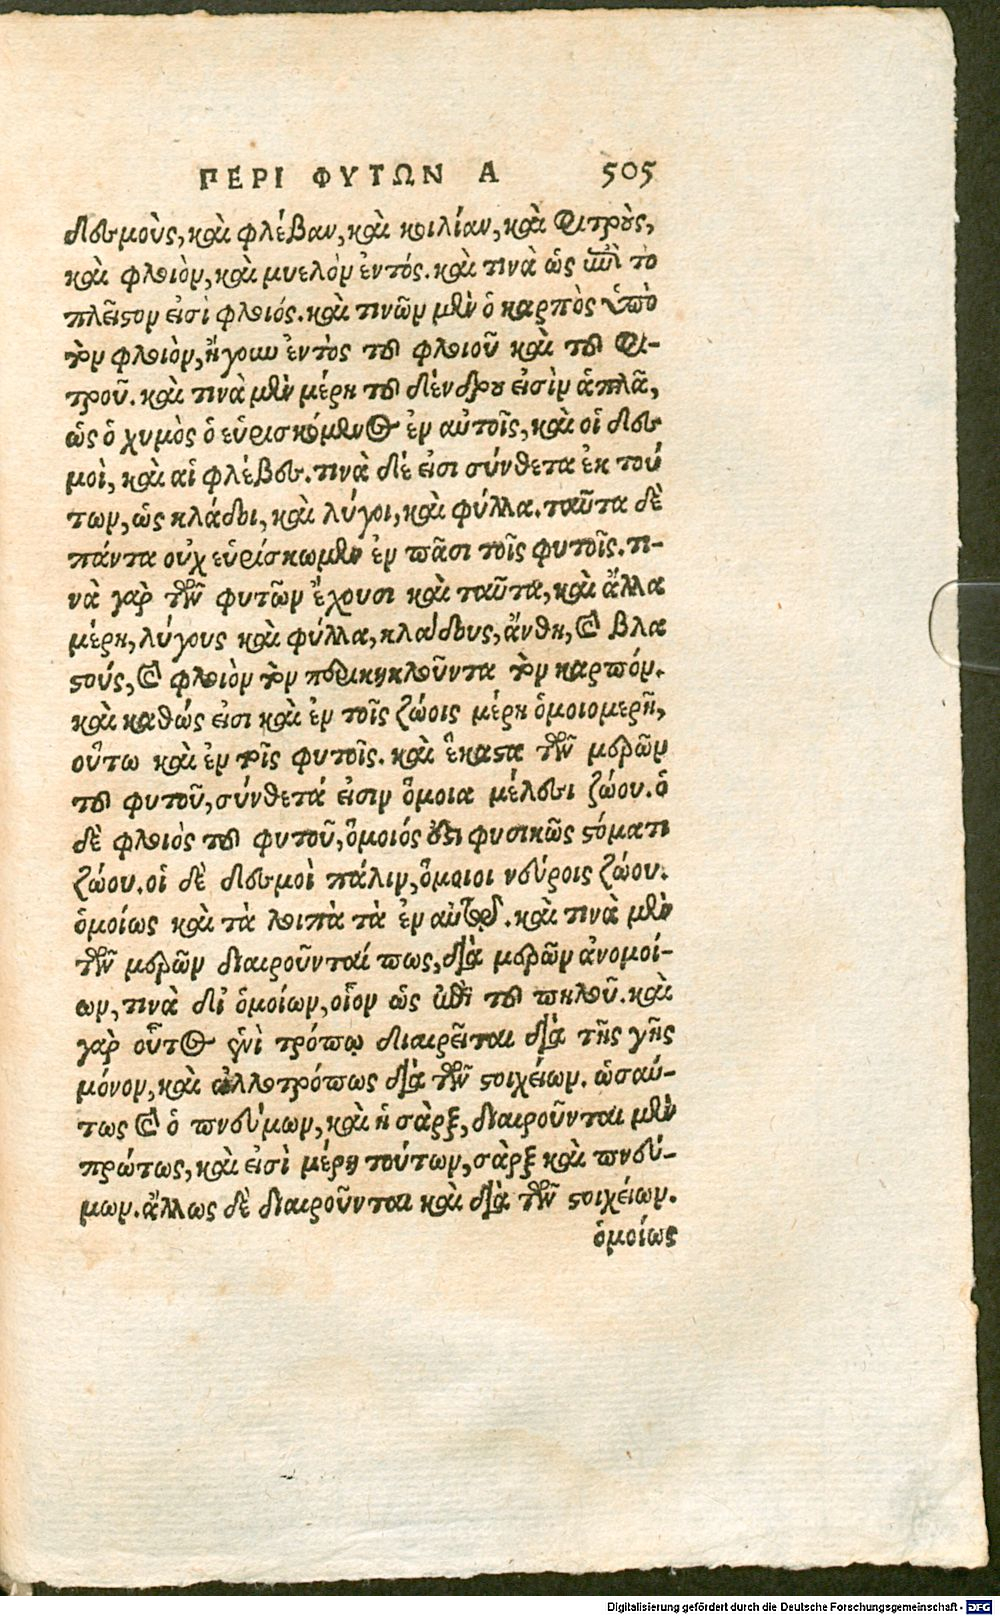 ΠΕΡΙ ΦΥΤΩΝ Α 505
δεσμοὺς, καὶ φλέβαν, καὶ κοιλίαν, καὶ μιτροὺς,
καὶ φλοιὸν, καὶ μυελὸν ἐντός. καὶ τινὰ ὡς ἐπὶ τὸ
πλεῖστον εἰσὶ φλοιός. καὶ τινῶν μὲν ὁ καρπὸς ὑπὸ
τὸν φλοιὸν, ἤγουν ἐντὸς τοῦ φλοιοῦ καὶ τοῦ μι-
τροῦ. καὶ τινὰ μὲν μέρη τοῦ δένδρου εἰσὶν ἁπλᾶ,
ὡς ὁ χυμὸς ὁ εὑρισκόμενος ἐν αὐτοῖς, καὶ οἱ δεσ
μοὶ, καὶ αἱ φλέβες. τινὰ δέ εἰσι σύνθετα ἐκ τού
των, ὡς κλάδοι, καὶ λύγοι, καὶ φύλλα. ταῦτα δὲ
πάντα οὐχ εὑρίσκωμεν ἐν πᾶσι τοῖς φυτοῖς. τι-
νὰ γὰρ τῶν φυτῶν ἔχουσι καὶ ταῦτα, καὶ ἄλλα
μέρη, λύγους καὶ φύλλα, κλάδους, ἄνθη, καὶ βλα
στούς, καὶ φλοιὸν τὸν περικυκλοῦντα τὸν καρπόν.
καὶ καθώς εἰσι καὶ ἐν τοῖς ζώοις μέρη ὁμοιομερῆ,
οὕτω καὶ ἐν τοῖς φυτοῖς. καὶ ἕκαστα τῶν μερῶν
τοῦ φυτοῦ, σύνθετά εἰσιν ὅμοια μέλεσι ζώου. ὁ
δὲ φλοιὸς τοῦ φυτοῦ, ὅμοιός ἐστι φυσικῶς στόματι
ζώου. οἱ δὲ δεσμοὶ πάλιν, ὅμοιοι νεύροις ζώου.
ὁμοίως καὶ τὰ λοιπὰ τὰ ἐν αὐτῷ. καὶ τινὰ μὲν
τῶν μερῶν διαιροῦνταί πως, διὰ μερῶν ἀνομοί-
ων, τινὰ δι ὁμοίων, οἷον ὡς ἐπὶ τοῦ πηλοῦ. καὶ
γὰρ οὗτος ἑνὶ τρόπῳ διαιρεῖται διὰ τῆς γῆς
μόνον, καὶ ἀλλοτρόπως διὰ τῶν στοιχείων. ὡσαύ-
τως καὶ ὁ πνεύμων, καὶ ἡ σὰρξ, διαιροῦνται μὲν
πρώτως, καὶ εἰσὶ μέρη τούτων, σὰρξ καὶ πνεύ-
μων. ἄλλως δὲ διαιροῦνται καὶ διὰ τῶν στοιχείων.
ὁμοίως
Digitalisierung gefördert durch die Deutsche Forschungsgemeinschaft - DFG